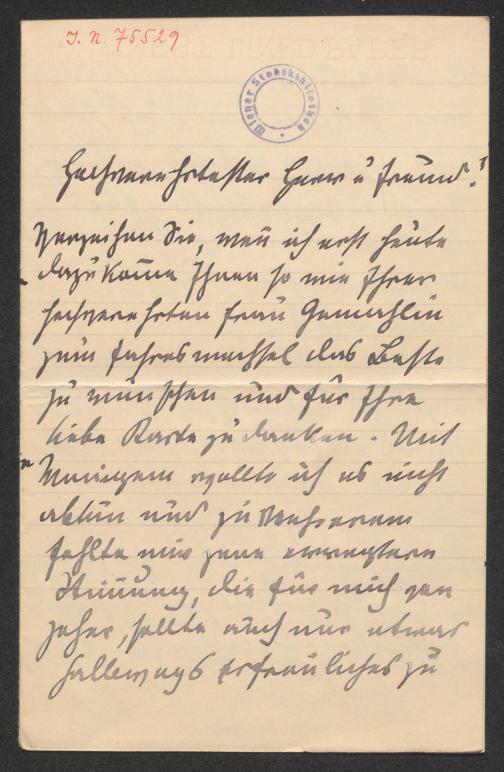 J. N. 75529
Wiener Stadtbibliothek
Hochverehrtester Herr u Freund!
Verzeihen Sie, weñ ich erst heute
dazu kom̄e Ihnen so wie Ihrer
hochverehrten Frau Gemahlin
zum Jahreswechsel das Beste
zu wünschen und für Ihre
liebe Karte zu danken. Mit
Wenigem wollte ich es nicht
abtun und zu Mehrerem
fehlte mir jene erregtere
Stim̄ung, die für mich von
jeher, sollte auch nur etwas
halbwegs Erfreuliches zu